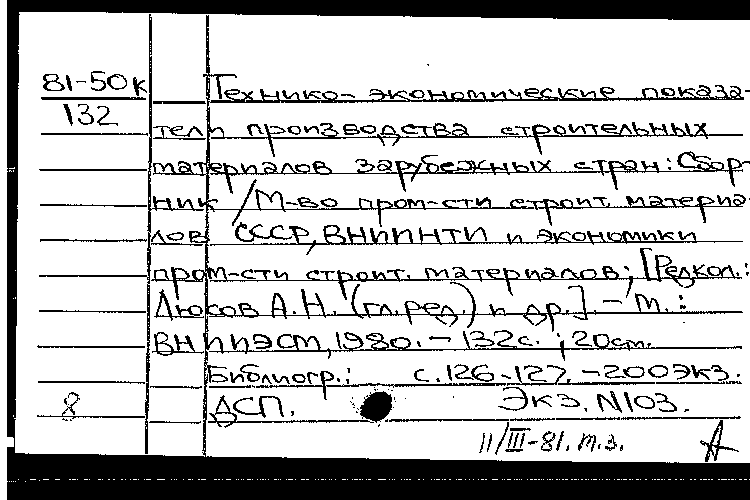 81-50к Технико-экономические показа-
132
тели производства строительных
материалов зарубежных стран: Сбор-
ник / М-во пром-сти строит. материа-
лов СССР, ВНИИНТИ и экономики
пром-сти строит. материалов; [Редкол.:
Люсов А.Н. (гл. ред.) и др.]. - М.:
ВНИИЭСМ, 1980. - 132с.; 20см.
Библиогр.: с.126-127. - 200экз.
8 ДСП. Экз. N103.
11/III-81. т.з.